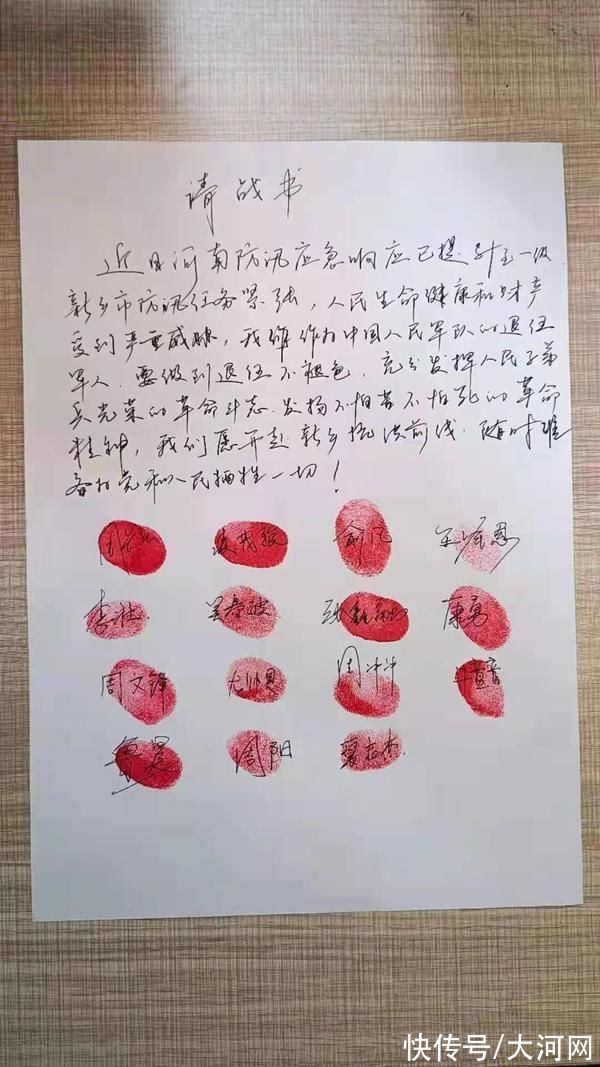 请战书
近日河南防汛应急响应已提升至一级
新乡市防汛任务紧张，人民生命健康和财产
受到严重威胁，我作为中国人民军队的退伍
军人，要做到退伍不褪色，充分发挥人民子弟
兵光荣的革命斗志，发扬不怕苦不怕死的革命
精神，我们愿开赴新乡抗洪前线，随时准
备为党和人民牺牲一切！
李壮 康勇
周文锋 周冲冲
鲁昊 周阳
快传号/大河网